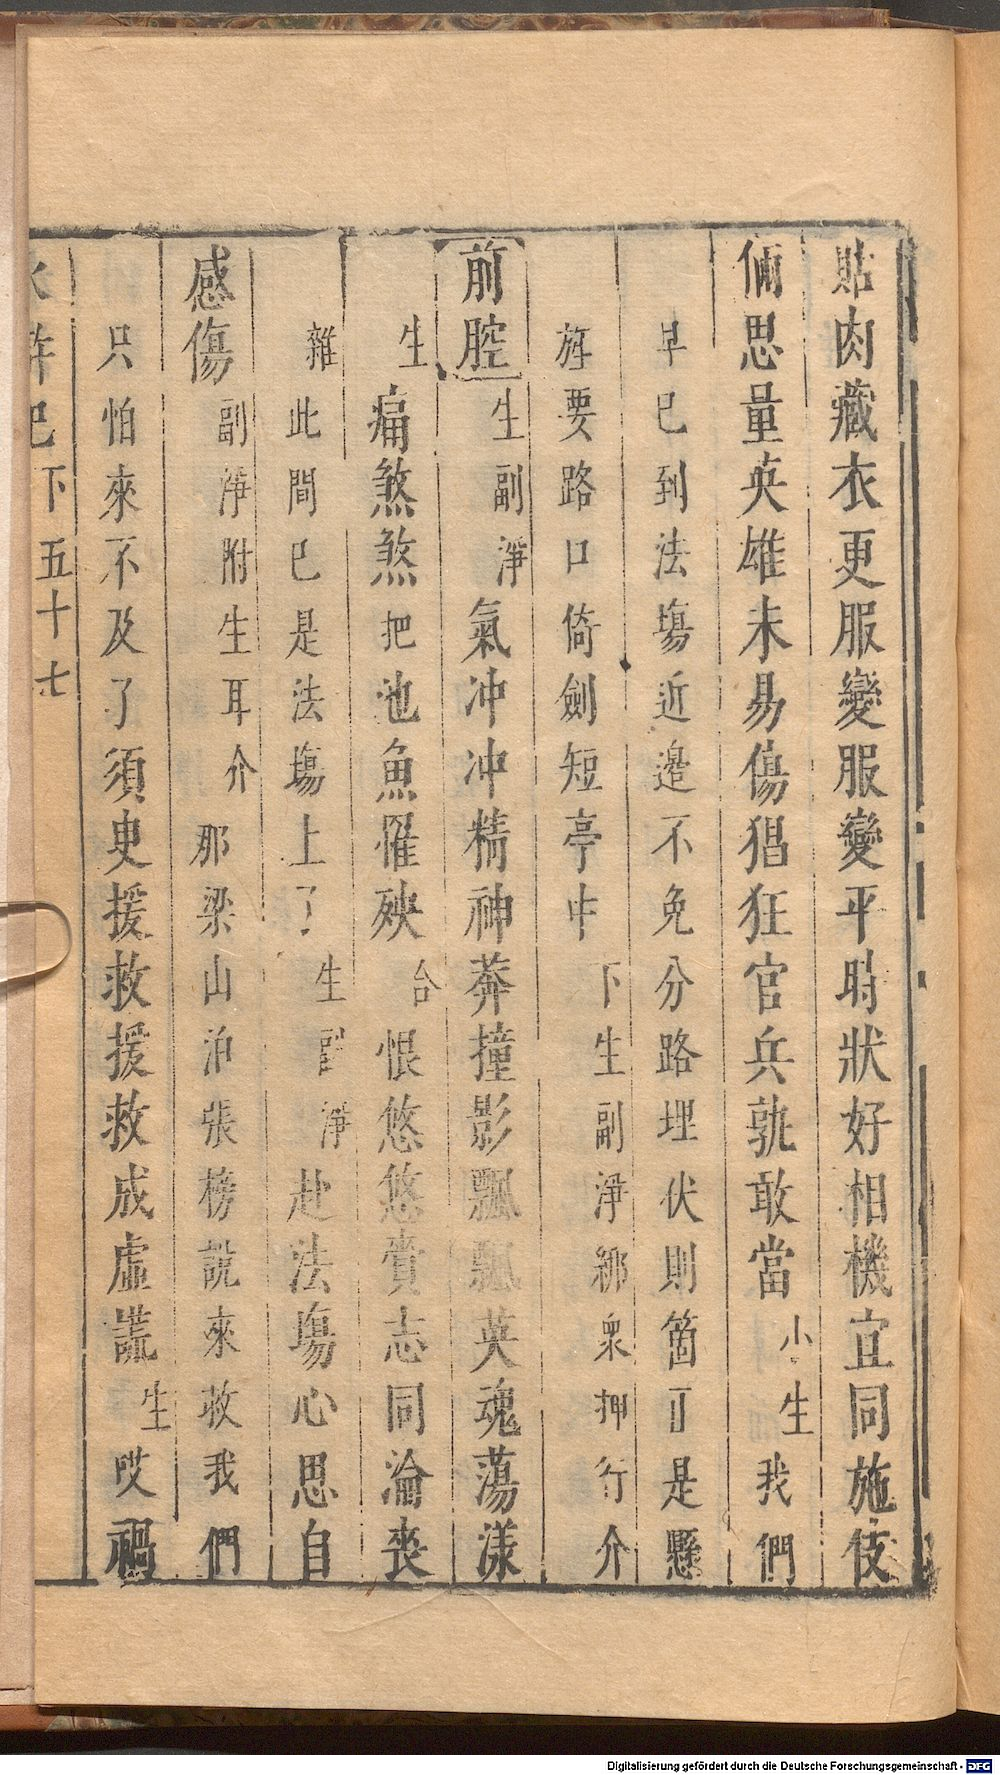 貼肉藏衣更服變服變平時狀好相機宜同施伎
倆思量英雄未易傷猖狂官兵孰敢當小生我們
早已到法場近邊不免分路埋伏則箇正是懸
旌要路口倚劍短亭中下生副淨綁衆押行介
前腔生副淨氣冲冲精神莽撞影飄飄英魂蕩漾
生痛煞煞把池魚罹殃合恨悠悠賫志同淪喪
雜此間已是法場上了生副淨赴法場心思自
感傷副淨附生耳介那梁山泊張榜説來救我們
只怕來不及了須臾援救援救成虛謊生哎禍
水滸記下五十七
Digitalisierung gefördert durch die Deutsche Forschungsgemeinschaft - DFG